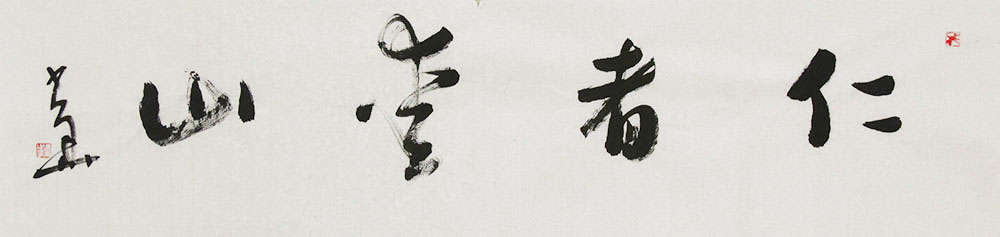 仁者樂山